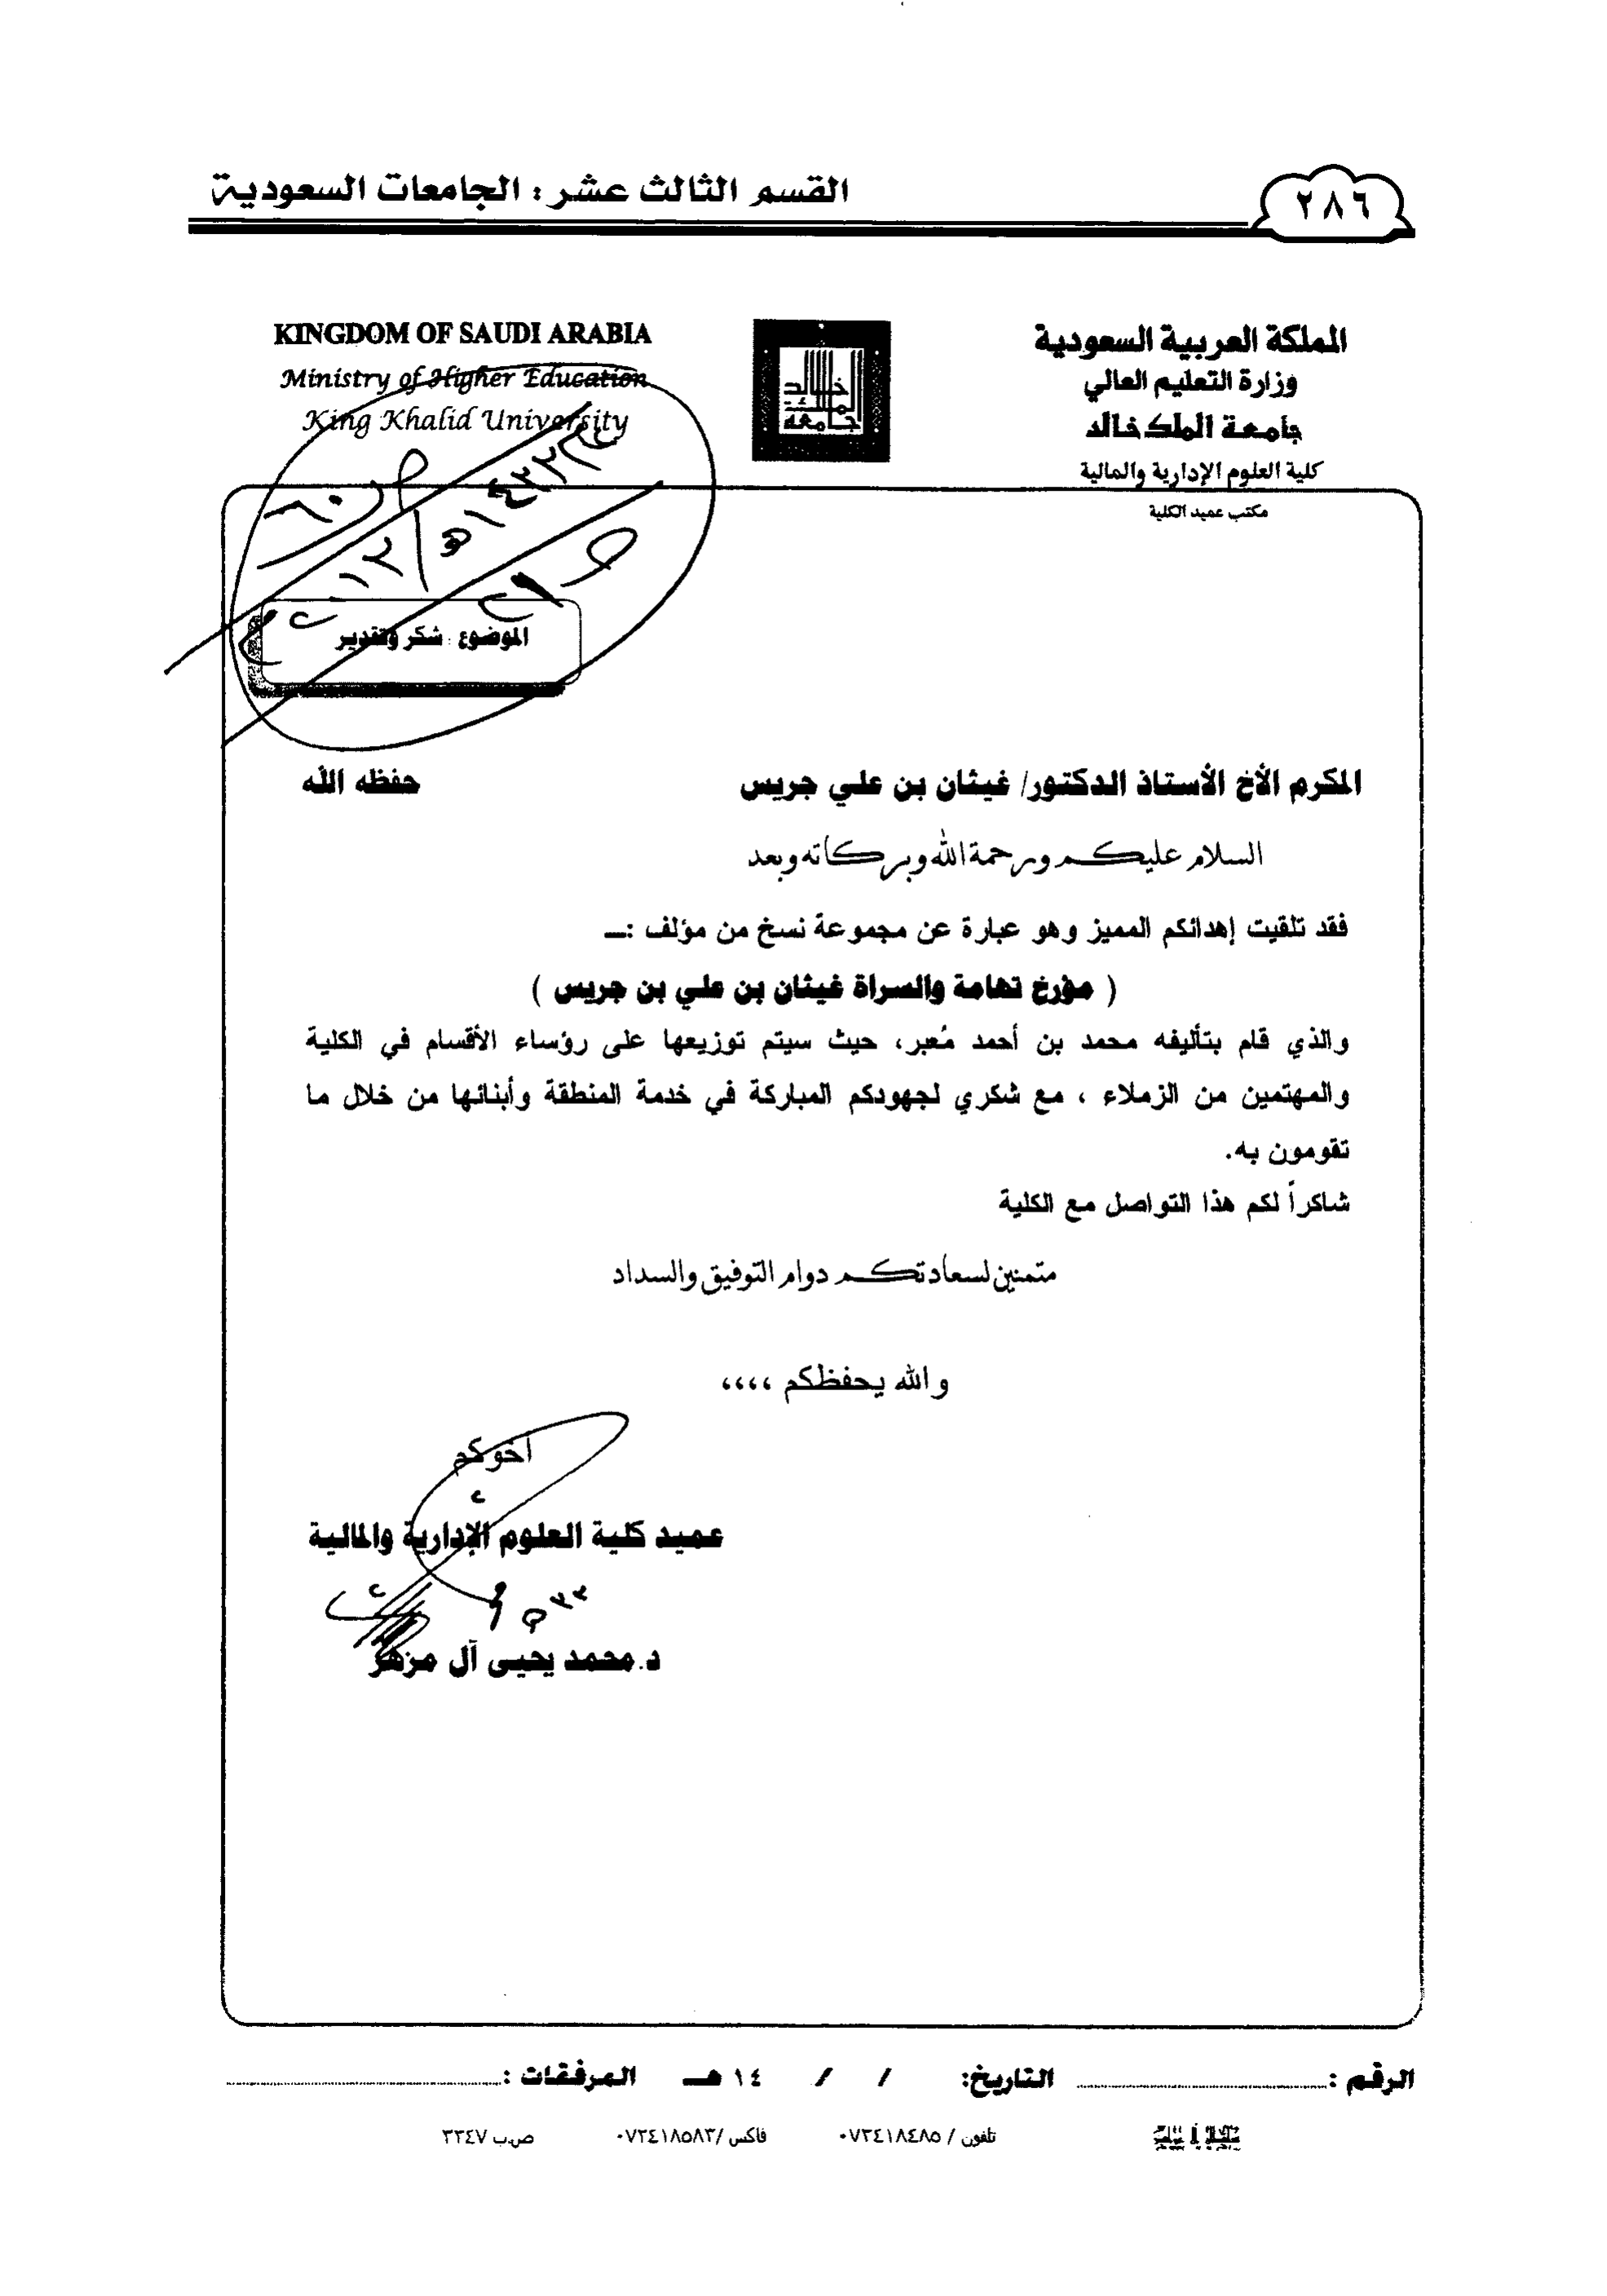 القسم الثالث عشر: الجامعات السعودية
٢٨٦
المملكة العربية السعودية
وزارة التعليم العالي
جامعة الملك خالد
كلية العلوم الإدارية والمالية
مكتب عميد الكلية
جامعة الملك خالد
KINGDOM OF SAUDI ARABIA
Ministry of Higher Education
King Khalid University
الموضوع : شكر وتقدير
المكرم الأخ الأستاذ الدكتور/ غيثان بن علي جريس حفظه الله
السلام عليكم ورحمة الله وبركاته وبعد
فقد تلقيت إهدائكم المميز وهو عبارة عن مجموعة نسخ من مؤلف :ــ
( مؤرخ تهامة والسراة غيثان بن علي بن جريس )
والذي قام بتأليفه محمد بن أحمد مُعبر، حيث سيتم توزيعها على رؤساء الأقسام في الكلية
والمهتمين من الزملاء ، مع شكري لجهودكم المباركة في خدمة المنطقة وأبنائها من خلال ما
تقومون به.
شاكراً لكم هذا التواصل مع الكلية
متمنين لسعادتكم دوام التوفيق والسداد
والله يحفظكم ،،،،
أخوكم
عميد كلية العلوم الإدارية والمالية
د.محمد يحيى آل مزهر
الرقم : التاريخ: / / ١٤ هـ المرفقات :
تلفون / ٠٧٢٤١٨٤٨٥ فاكس /٠٧٢٤١٨٥٨٣ ص.ب ٣٣٤٧